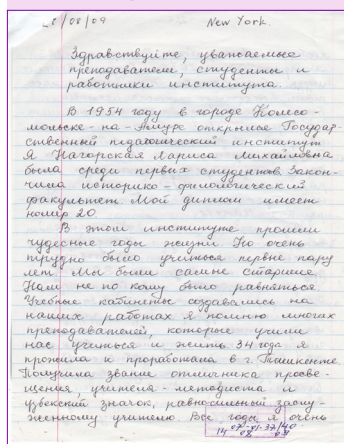 28/08/09 New York.
Здравствуйте, уважаемые
преподаватели, студенты и
работники института.
В 1954 году в городе Комсо-
мольске-на-Амуре открылся Государ-
ственный педагогический институт
Я Нагорская Лариса Михайловна
была среди первых студентов Закон-
чила историко-филологический
факультет Мой диплом имеет
номер 20
В этом институте прошли
чудесные годы жизни Но очень
трудно было учиться первые пару
лет Мы были самые старшие
Нам не по кому было равняться
Учебные кабинеты создавались на
наших работах Я помню многих
преподавателей, которые учили
нас учиться и жить 34 года я
прожила и проработала в г. Ташкенте
Получила звание отличника просве-
щения, учителя-методиста и
узбекский значок, равносильный заслу-
женному учителю Все годы я очень